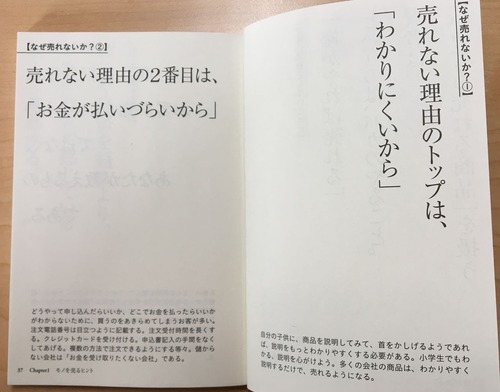 【なぜ売れないか?①】
売れない理由のトップは、
「わかりにくいから」
自分の子供に、商品を説明してみて、首をかしげるようであれ
ば、説明をもっとわかりやすくする必要がある。小学生でもわ
かる、説明を心がけよう。多くの会社の商品は、わかりやすく
説明するだけで、売れるようになる。
【なぜ売れないか?②】
売れない理由の2番目は、
「お金が払いづらいから」
どうやって申し込んだらいいか、どこでお金を払ったらいいか
がわからないために、買うのをあきらめてしまうお客が多い。
注文電話番号は目立つように記載する。注文受付時間を長くす
る。クレジットカードを受け付ける。申込書記入の手間をなく
してあげる。複数の方法で注文できるようにする等々。儲から
ない会社は「お金を受け取りたくない会社」である。
37 Chapter1 モノを売るヒント